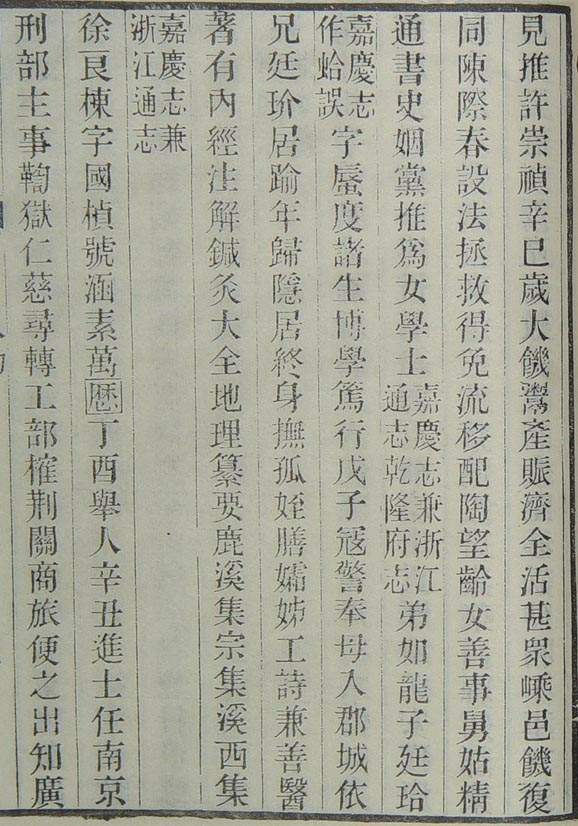 見推許崇禎辛巳歲大饑鬻產賑濟全活甚眾嵊邑饑復
同陳際春設法拯救得免流移配陶望齡女善事舅姑精
通書史姻黨推爲女學士嘉慶志兼浙江通志乾隆府志弟如龍子廷玿
嘉慶志作蛤誤字蜃度諸生博學篤行戊子寇警奉母入郡城依
兄廷玠居踰年歸隱居終身撫孤姪膳孀姊工詩兼善醫
著有內經注解鍼灸大全地理纂要鹿溪集宗集溪西集
嘉慶志兼浙江通志
徐良棟字國楨號涵素萬曆丁酉舉人辛丑進士任南京
刑部主事鞫獄仁慈尋轉工部榷荆關商旅便之出知廣